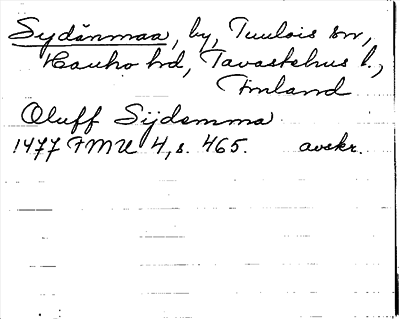 Sydänmaa, by, Tuulois sn,
Hauho hd, Tavastehus l.,
Finland
Oluff Sijdemma
1477 FMU 4, s. 465. avskr.